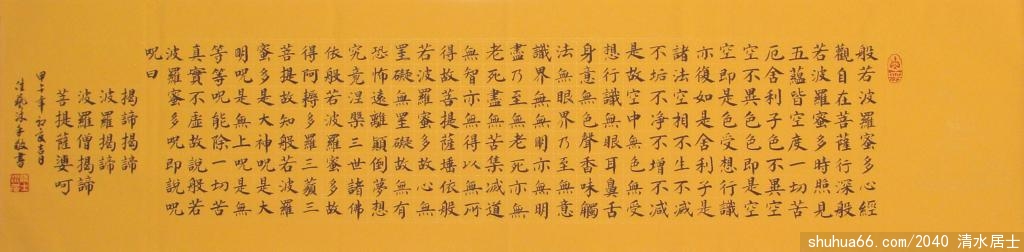 般若波羅蜜多心經
觀自在菩薩行深般
若波羅蜜多時照見
五蘊皆空度一切苦
厄舍利子色不異空
空不異色色即是空
空即是色受想行識
亦復如是舍利子是
諸法空相不生不滅
不垢不净不增不减
是故空中無色無受
想行識無眼耳鼻舌
身意無色聲香味觸
法無眼界乃至無意
識界無無明亦無明
盡乃至無老死亦無
老死盡無苦集滅道
無智亦無得以無所
得故菩提薩埵依般
若波羅蜜多故心無
罣礙無罣礙故無有
恐怖遠離顛倒夢想
究竟涅槃三世諸佛
依般若波羅蜜多故
得阿耨多羅三藐三
菩提故知般若波羅
蜜多是大神呪是大
明呪是無上呪是無
等等呪能除一切苦
真實不虛故說般若
波羅蜜多呪即說呪
呪曰
揭諦揭諦
波羅揭諦
波羅僧揭諦
菩提薩婆呵
甲午年初夏吉日
沐手敬書
shuhua66.com/2040 清水居士